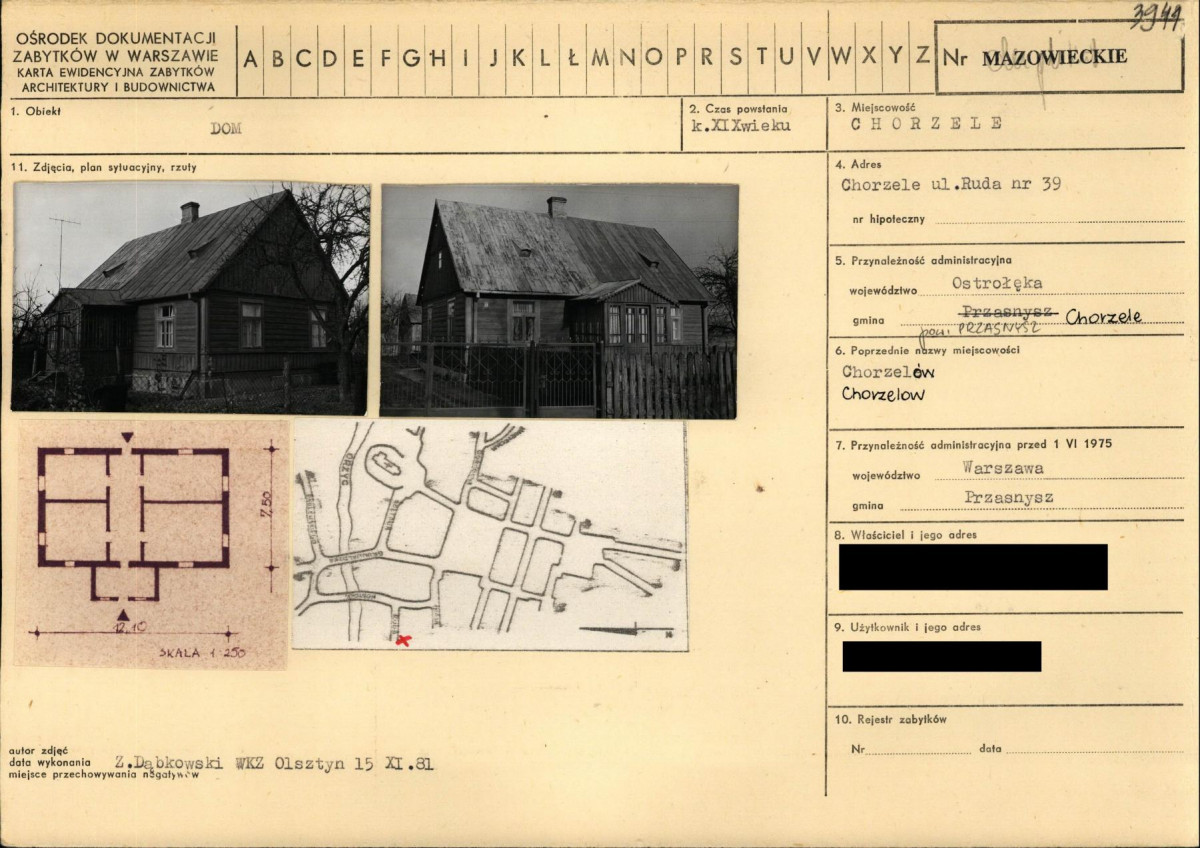 3944
OŚRODEK DOKUMENTACJI
ZABYTKÓW W WARSZAWIE
KARTA EWIDENCYJNA ZABYTKÓW
ARCHITEKTURY I BUDOWNICTWA
A B C D E F G H I J K L Ł M N O P R S T U V W X Y Z
Nr MAZOWIECKIE
1. Obiekt
DOM
2. Czas powstania
k.XIXwieku
3. Miejscowość
CHORZELE
11. Zdjęcia, plan sytuacyjny, rzuty
4. Adres
Chorzele ul.Ruda nr 39
nr hipoteczny
5. Przynależność administracyjna
województwo Ostrołęka
gmina Przasnysz Chorzele
pow. PRZASNYSZ
6. Poprzednie nazwy miejscowości
Chorzelów
Chorzelow
7. Przynależność administracyjna przed 1 VI 1975
województwo Warszawa
gmina Przasnysz
8. Właściciel i jego adres
9. Użytkownik i jego adres
10. Rejestr zabytków
Nr data
7,50
12,10
SKALA 1:250
ORZYC
autor zdjęć
data wykonania Z.Dąbkowski WKZ Olsztyn 15 XI.81
miejsce przechowywania negatywów